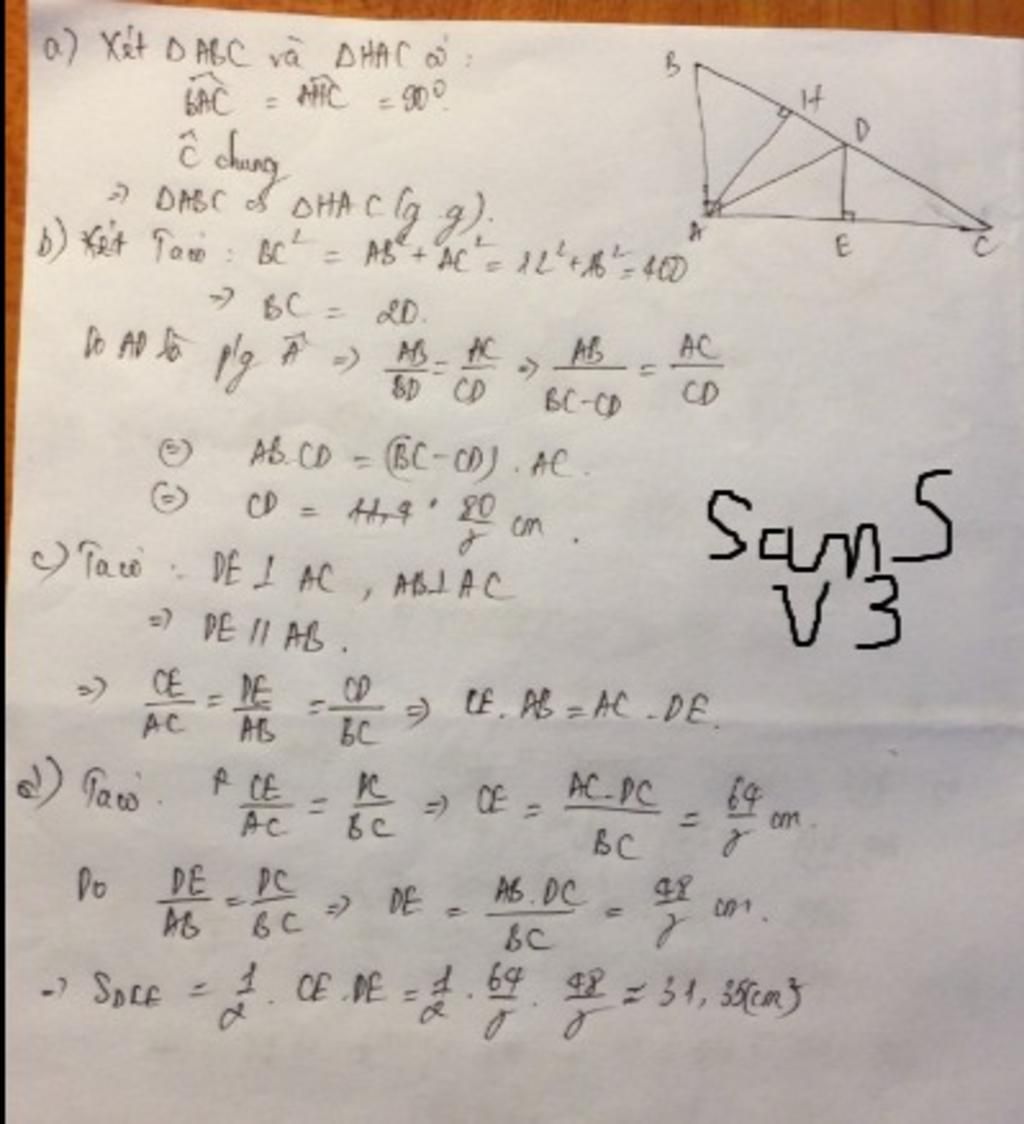 a) Xét ΔABC và ΔHAC có :
BAC = AHC = 90°
Ĉ chung
=> ΔABC ∽ ΔHAC (g g).
b) Ta có : BC² = AB² + AC² = 12² + 16² = 400
=> BC = 20.
Do AD là p/g Â => AB/BD = AC/CD => AB/(BC-CD) = AC/CD
(=) AB.CD = (BC-CD) . AC .
(=) CD = 80/7 cm .
c) Ta có : DE ⊥ AC , AB ⊥ AC
=> DE // AB .
=> CE/AC = DE/AB = CD/BC => CE . AB = AC . DE .
d) Ta có . CE/AC = DC/BC => CE = AC.DC/BC = 64/7 cm .
Do DE/AB = DC/BC => DE = AB.DC/BC = 48/7 cm .
=> SDCE = 1/2 . CE . DE = 1/2 . 64/7 . 48/7 ≈ 31,35(cm²)
B
H
D
A
E
C
SamS
V3